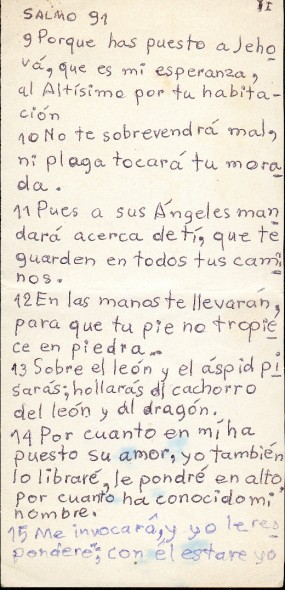 II
SALMO 91
9 Porque has puesto a Jeho
vá, que es mi esperanza,
al Altísimo por tu habita-
ción
10 No te sobrevendrá mal,
ni plaga tocará tu mora
da.
11 Pues a sus Ángeles man
dará acerca de tí, que te
guarden en todos tus cami
nos.
12 En las manos te llevarán,
para que tu pie no tropie
ce en piedra.
13 Sobre el león y el áspid pi
sarás; hollarás al cachorro
del león y al dragón.
14 Por cuanto en mí ha
puesto su amor, yo también
lo libraré, le pondré en alto
Por cuanto ha conocido mi
nombre.
15 Me invocará, y yo le res
ponderé; con él estare yo